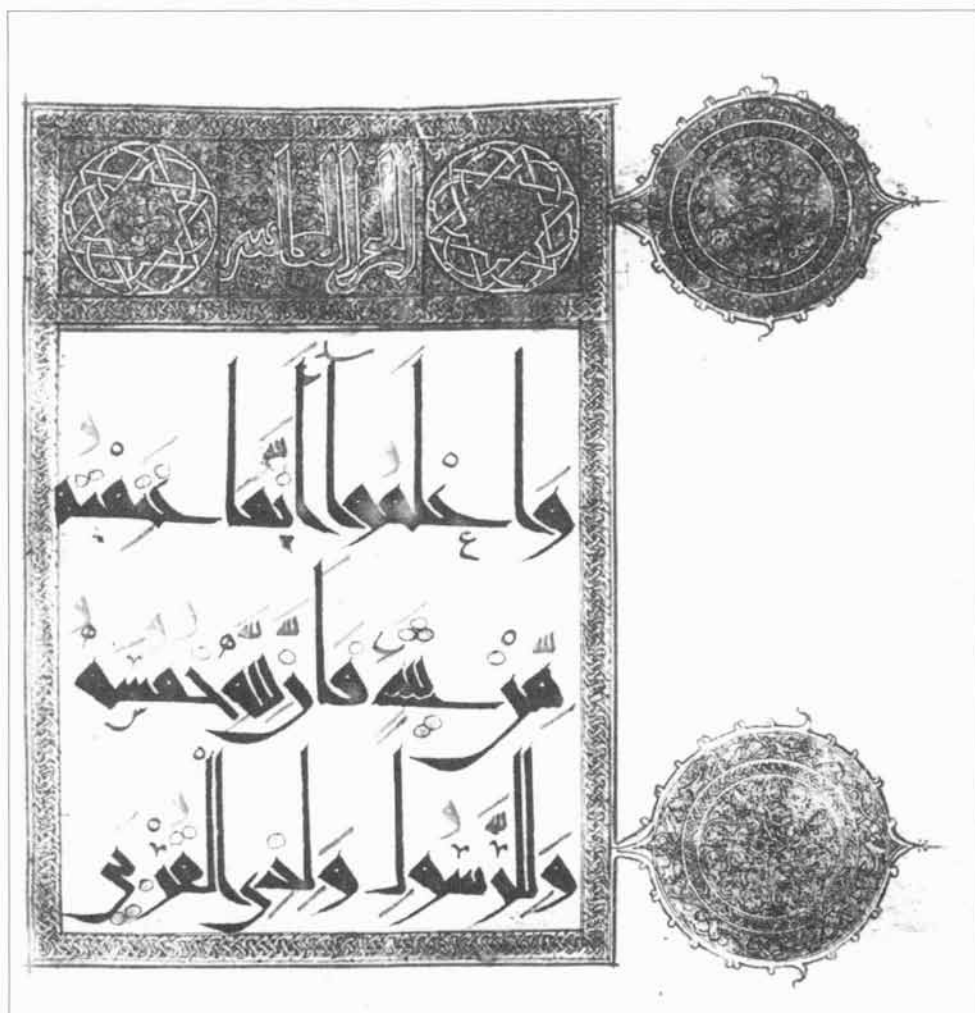 الجزء العاشر
وَاعْلَمُوا أَنَّمَا غَنِمْتُمْ
مِّنْ شَيْءٍ فَأَنَّ لِلَّهِ خُمُسَهُ
وَلِلرَّسُولِ وَلِذِي الْقُرْبَى